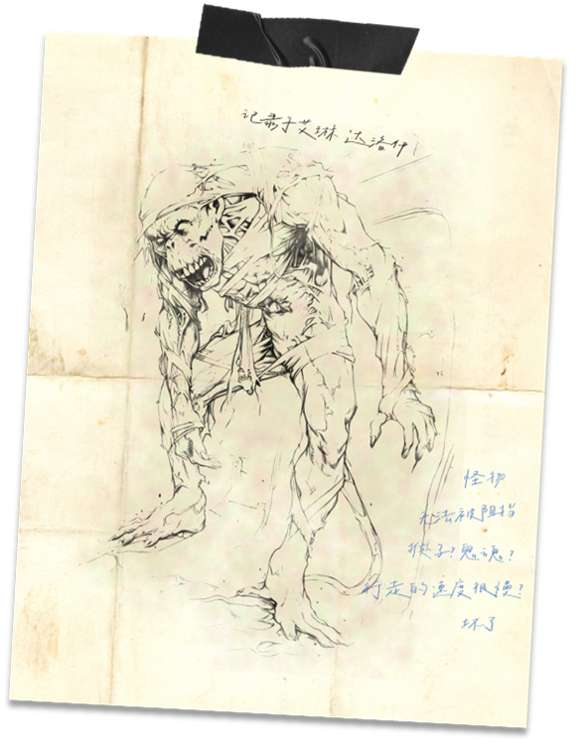 记录于艾琳 达洛伊
怪物
无法被阻挡
猴子?鬼魂?
行走的速度很慢?
坏了